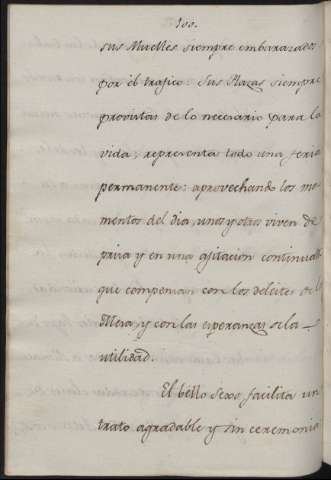 100.
sus Muelles siempre embarazados
por el trafico: Sus Plazas siempre
provistas de lo necesario para la
vida; representa todo una feria
permanente: aprovechando los mo-
mentos del dia, unos y otros viven de
prisa y en una agitacion continua
que compensan con los deleites de la
Mesa, y con las esperanzas de la
utilidad.
El bello Sexo facilita un
trato agradable y sin ceremonia